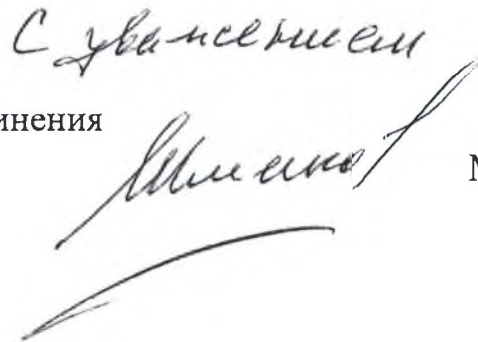 С уважением
инения